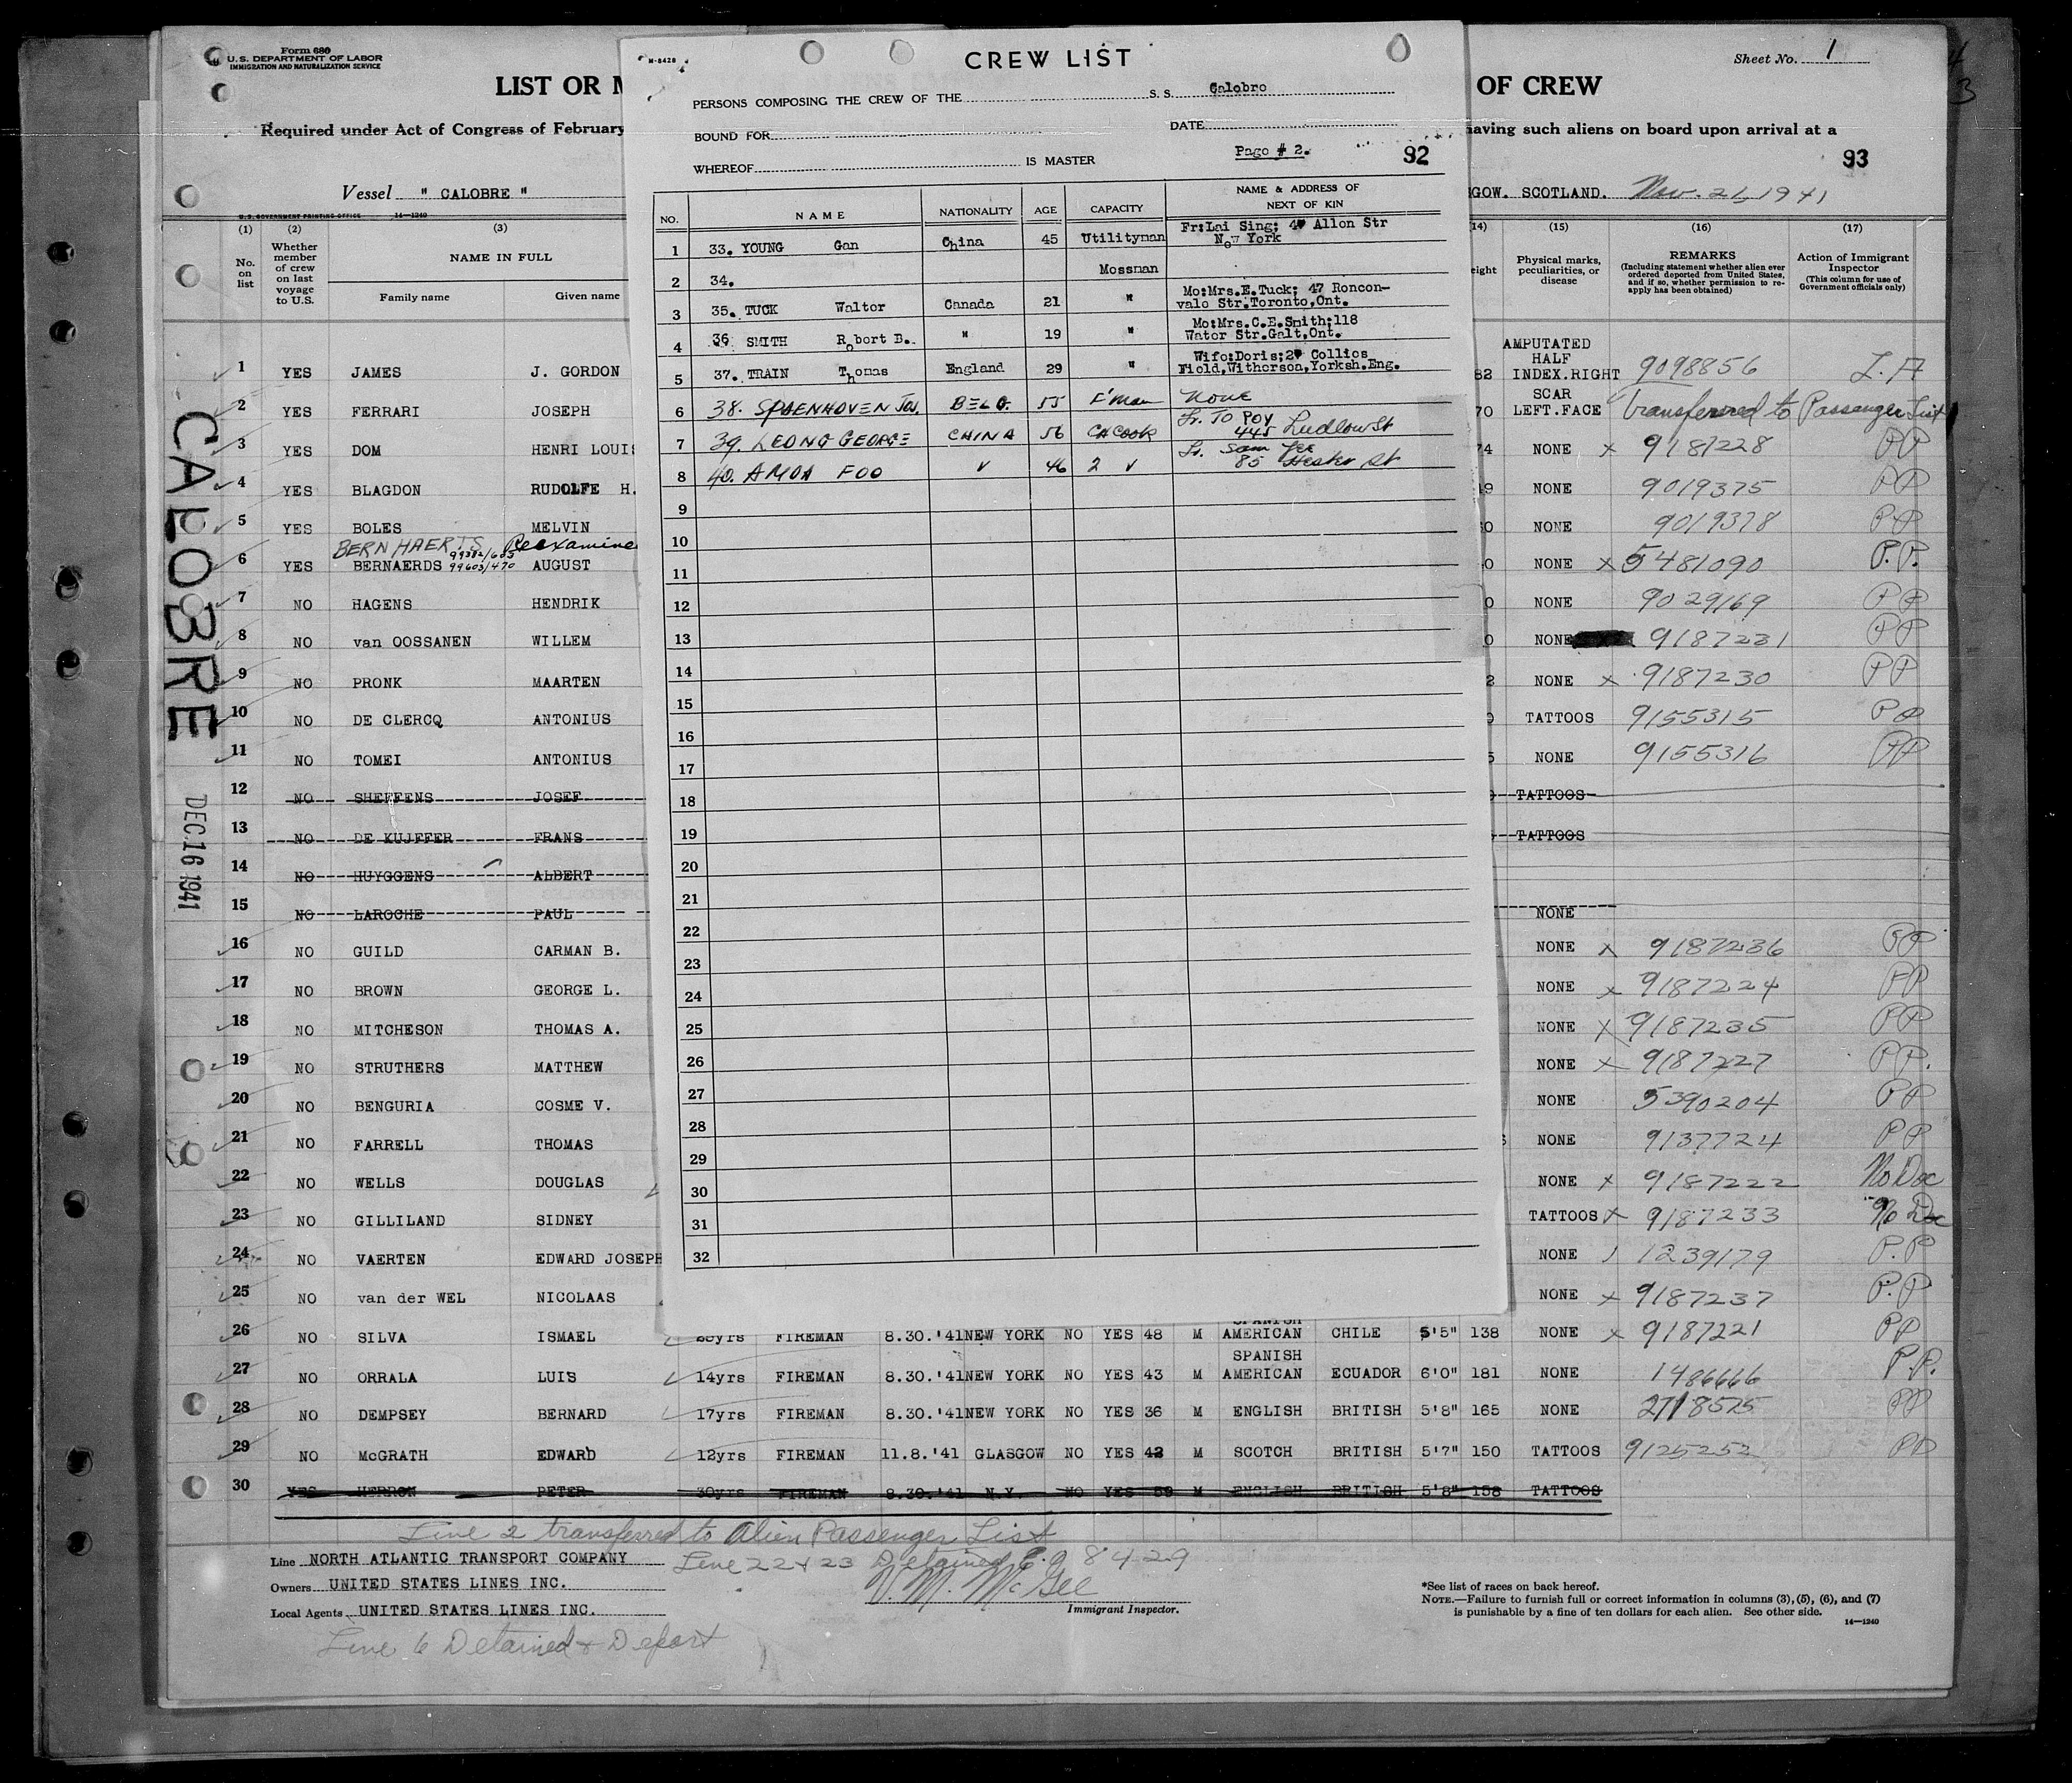 Form 680
U.S. DEPARTMENT OF LABOR
IMMIGRATION AND NATURALIZATION SERVICE
Sheet No. 1
LIST OR M
OF CREW
Required under Act of Congress of February
having such aliens on board upon arrival at a
93
Vessel " CALOBRE "
GOW. SCOTLAND. Nov. 21, 1941
U.S. GOVERNMENT PRINTING OFFICE 14-1240
CALOBRE
DEC. 16 1941
M-8428
CREW LIST
PERSONS COMPOSING THE CREW OF THE S. S. Calobro
BOUND FOR DATE
WHEREOF IS MASTER Pago # 2. 92
NO. NAME NATIONALITY AGE CAPACITY NAME & ADDRESS OF NEXT OF KIN
1 33. YOUNG Gan China 45 Utilityman Fr:Lai Sing; 47 Allon Str
Now York
2 34. Mossman
3 35. TUCK Waltor Canada 21 " Mo:Mrs.E.Tuck; 47 Roncon-
valo Str.Toronto,Ont.
4 36 SMITH Robort B. " 19 " Mo:Mrs.C.E.Smith;118
Wator Str.Galt,Ont.
5 37. TRAIN Thomas England 29 " Wifo:Doris;27 Collios
Fiold,Withorsoa,Yorksh.Eng.
6 38. SPOENHOVEN Jos. BELG. 55 F'man None
7 39. LEONG GEORGE CHINA 56 Ch Cook Fr. To Poy
445 Ludlow St
8 40. AMOA FOO " 46 2 " Fr. Sam Lee
85 Hester St
9
10
11
12
13
14
15
16
17
18
19
20
21
22
23
24
25
26
27
28
29
30
31
32
(1) (2) (3) (14) (15) (16) (17)
No. on list
Whether member of crew on last voyage to U.S.
NAME IN FULL
Family name Given name
eight
Physical marks, peculiarities, or disease
REMARKS
(Including statement whether alien ever ordered deported from United States, and if so, whether permission to re-apply has been obtained)
Action of Immigrant Inspector
(This column for use of Government officials only)
1 YES JAMES J. GORDON 82 AMPUTATED HALF INDEX.RIGHT 9098856
2 YES FERRARI JOSEPH 70 SCAR LEFT.FACE transferred to Passenger List
3 YES DOM HENRI LOUIS 74 NONE x 9187228 PP
4 YES BLAGDON RUDOLFE H. 49 NONE 9019375 PP
5 YES BOLES MELVIN 0 NONE 9019378 PP
BERNHAERTS 99382/603 Reexamine
6 YES BERNAERDS 99603/470 AUGUST 0 NONE x 5481090 P.P.
7 NO HAGENS HENDRIK 0 NONE 9029169 PP
8 NO van OOSSANEN WILLEM 0 NONE 9187231 PP
9 NO PRONK MAARTEN 2 NONE x 9187230 PP
10 NO DE CLERCQ ANTONIUS TATTOOS 9155315 PP
11 NO TOMEI ANTONIUS 5 NONE 9155316 PP
12 NO SHEFFENS JOSEF TATTOOS
13 NO DE KUJFFER FRANS TATTOOS
14 NO HUYGGENS ALBERT
15 NO LAROCHE PAUL NONE
16 NO GUILD CARMAN B. NONE x 9187236 PP
17 NO BROWN GEORGE L. NONE x 9187224 PP
18 NO MITCHESON THOMAS A. NONE x 9187235 PP
19 NO STRUTHERS MATTHEW NONE x 9187227 PP.
20 NO BENGURIA COSME V. NONE 5390204 PP
21 NO FARRELL THOMAS NONE 9137724 PP
22 NO WELLS DOUGLAS NONE x 9187222 No Doc
23 NO GILLILAND SIDNEY TATTOOS x 9187233 No Doc
24 NO VAERTEN EDWARD JOSEPH NONE 1239179 P.P
25 NO van der WEL NICOLAAS NONE x 9187237 P.P
26 NO SILVA ISMAEL FIREMAN 8.30.'41 NEW YORK NO YES 48 M SPANISH AMERICAN CHILE 5'5" 138 NONE x 9187221 PP
27 NO ORRALA LUIS 14yrs FIREMAN 8.30.'41 NEW YORK NO YES 43 M SPANISH AMERICAN ECUADOR 6'0" 181 NONE 1486666 P.P.
28 NO DEMPSEY BERNARD 17yrs FIREMAN 8.30.'41 NEW YORK NO YES 36 M ENGLISH BRITISH 5'8" 165 NONE 2718575 PP
29 NO McGRATH EDWARD 12yrs FIREMAN 11.8.'41 GLASGOW NO YES 42 M SCOTCH BRITISH 5'7" 150 TATTOOS 9125252 PP
30 YES HERRON PETER 30yrs FIREMAN 8.30.'41 N.Y. NO YES 59 M ENGLISH BRITISH 5'8" 158 TATTOOS
Line 2 transferred to Alien Passenger List
Line NORTH ATLANTIC TRANSPORT COMPANY
Line 22 + 23 Detained 8429
Owners UNITED STATES LINES INC.
V. M. McGee
Immigrant Inspector.
Local Agents UNITED STATES LINES INC.
Line 6 Detained & Deport
*See list of races on back hereof.
NOTE.—Failure to furnish full or correct information in columns (3), (5), (6), and (7)
is punishable by a fine of ten dollars for each alien. See other side.
14—1240